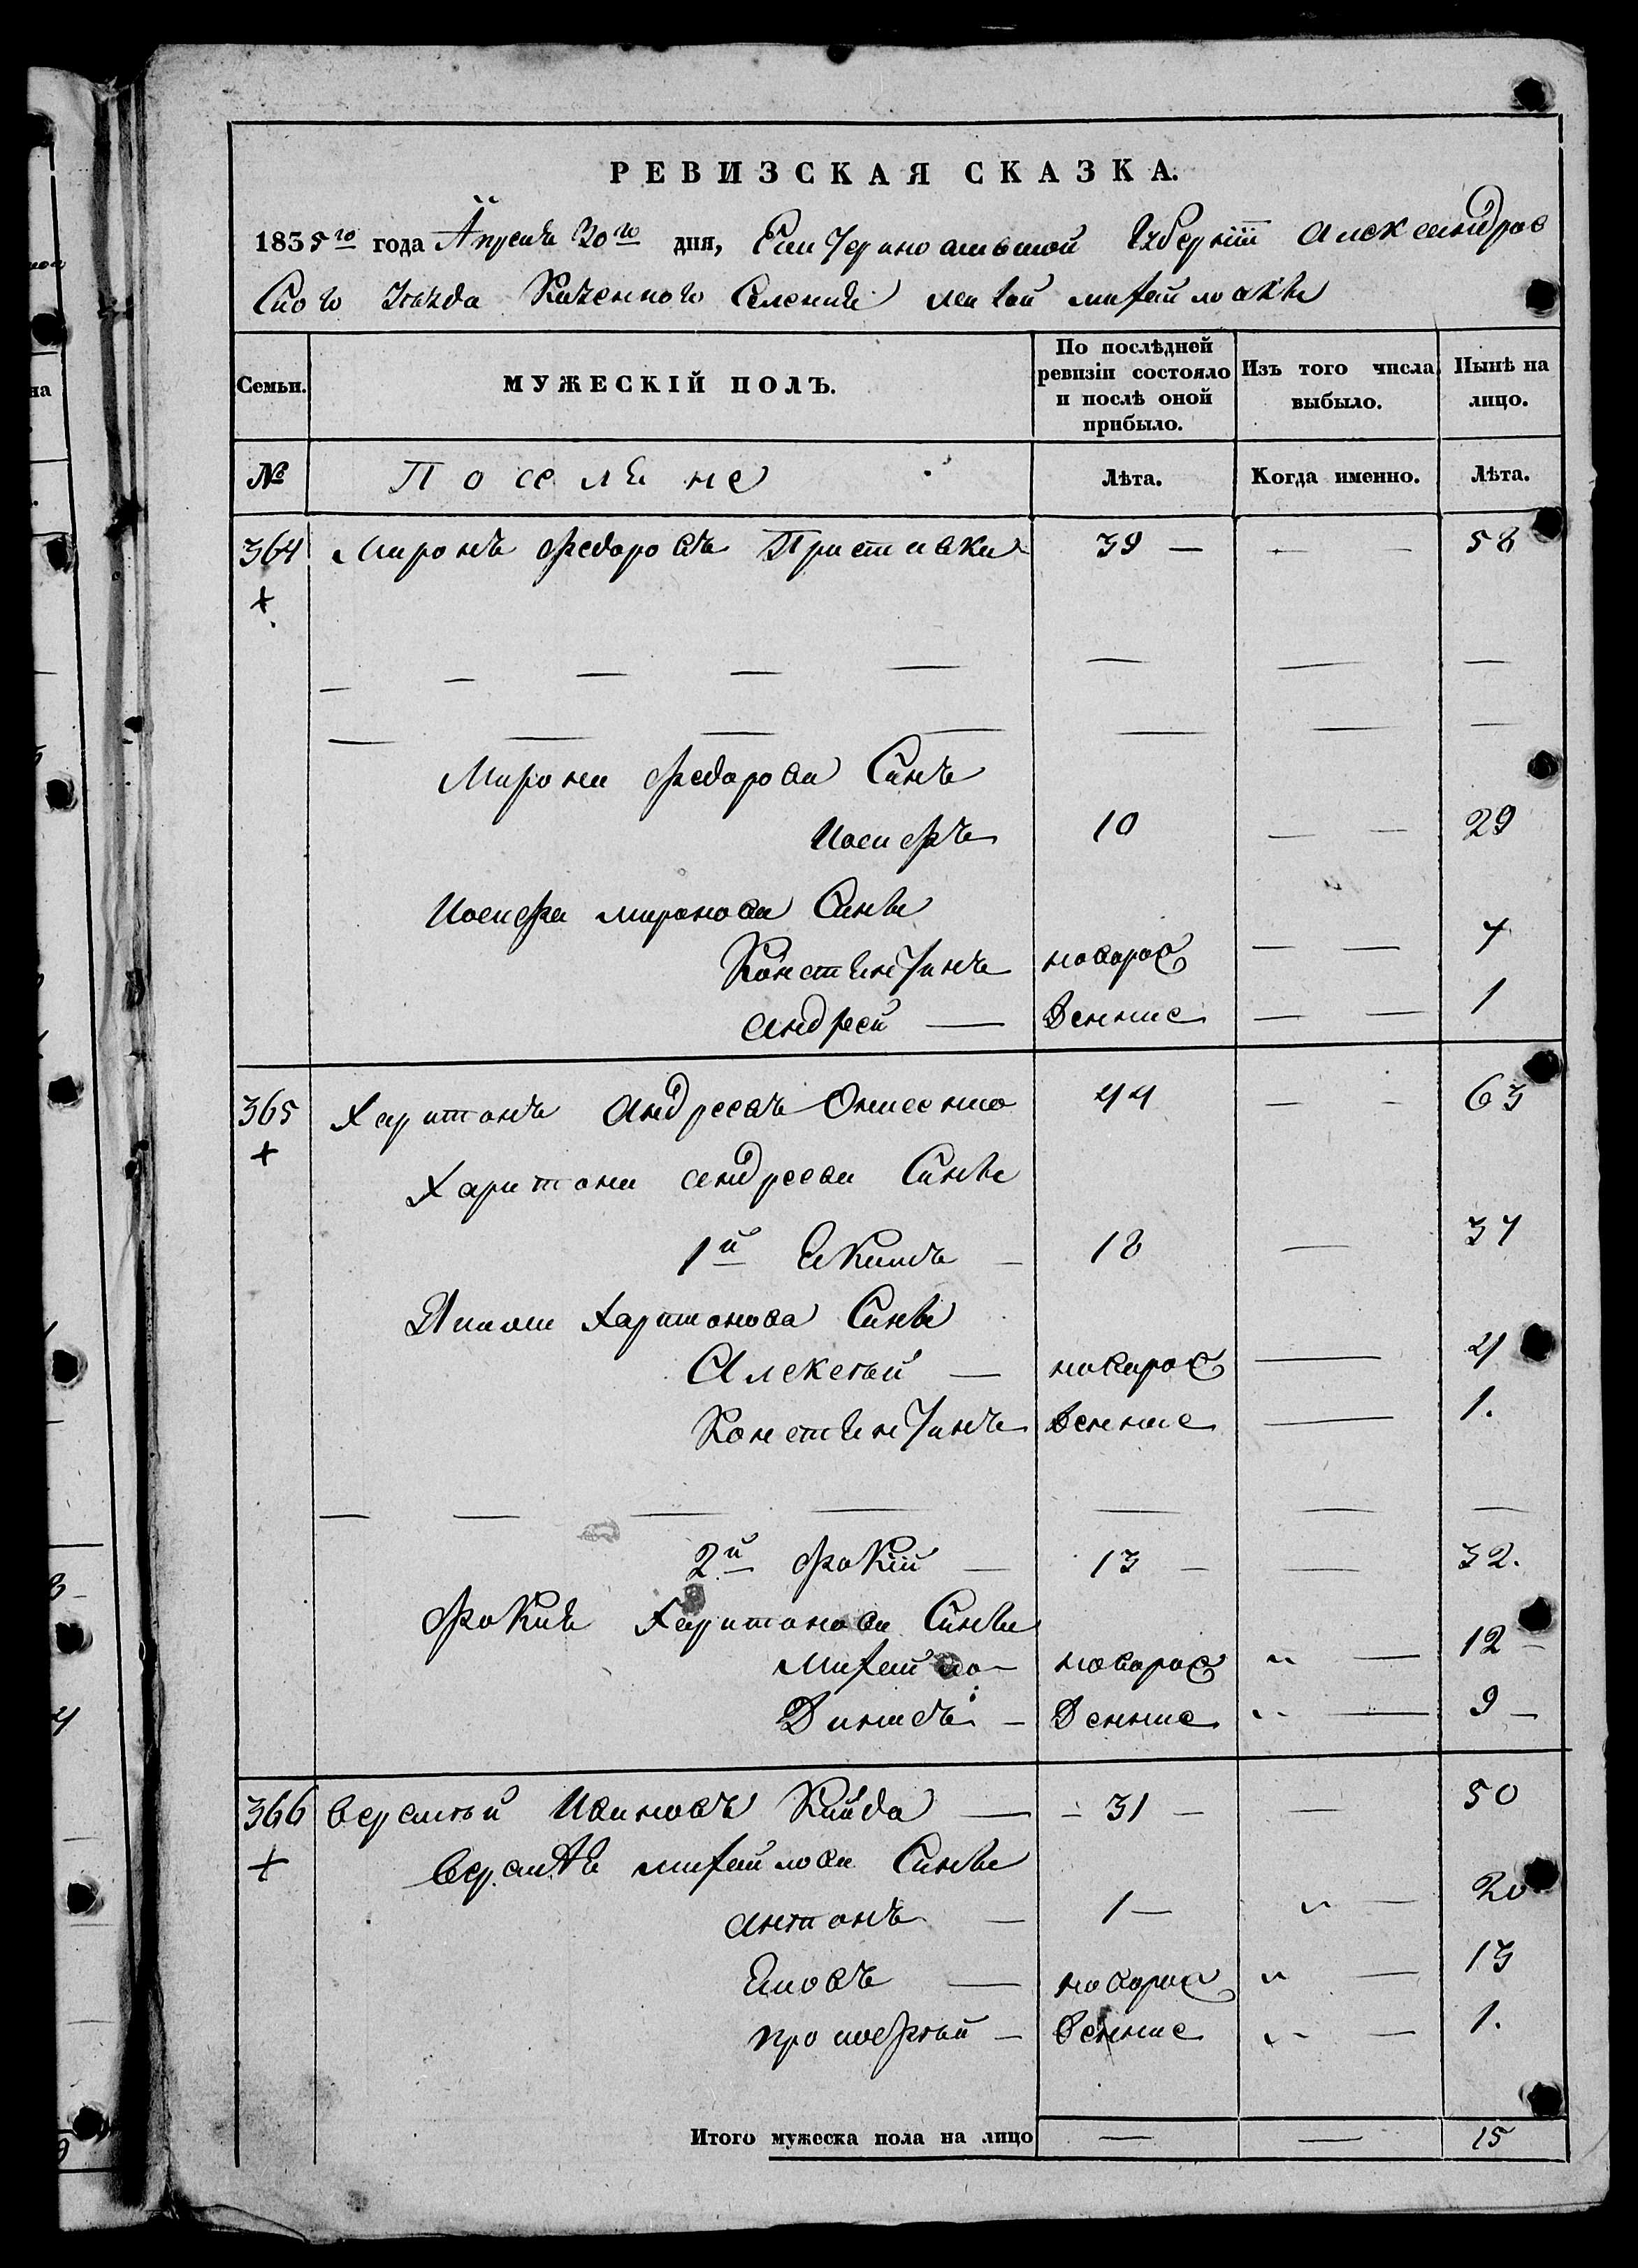 РЕВИЗСКАЯ СКАЗКА.
1835го года Апреля 30го дня, Екатеринославской Губернiи Александров
Скаго Уезда Казеннаго Селения малой михайловки
Семьи. МУЖЕСКIЙ ПОЛЪ. По послѣдней ревизiи состояло и послѣ оной прибыло. Изъ того числа выбыло. Нынѣ на лицо.
№ Поселяне Лѣта. Когда именно. Лѣта.
364 Миронъ Федоровъ Приставка 39 — — — 58
+
— — — — — — — —
— — — — — — —
Мирона Федорова Синъ
Иосифъ 10 — — 29
Иосифа миронова Сини
Константинъ новорож — — 7
андрей — денние — — 1
365 Харитонъ андреевъ 44 — - 63
+
Харитона андреева Сини
1й Екимъ — 18 — 37
Харитонова Сини
Алексѣй — новорож — 4
Константинъ денние — 1.
— — — — — — —
2й Фокiй — 13 — — 32.
Фокия Харитонова Сини
Михайло — новорож " — 12 —
— денние " — 9 —
366 Ивановъ Кайда — - 31 — — 50
+
михайлова Сини
антонъ — 1 — " — 20
— новорож " — 13
— денние " — 1.
Итого мужеска пола на лицо — — 15